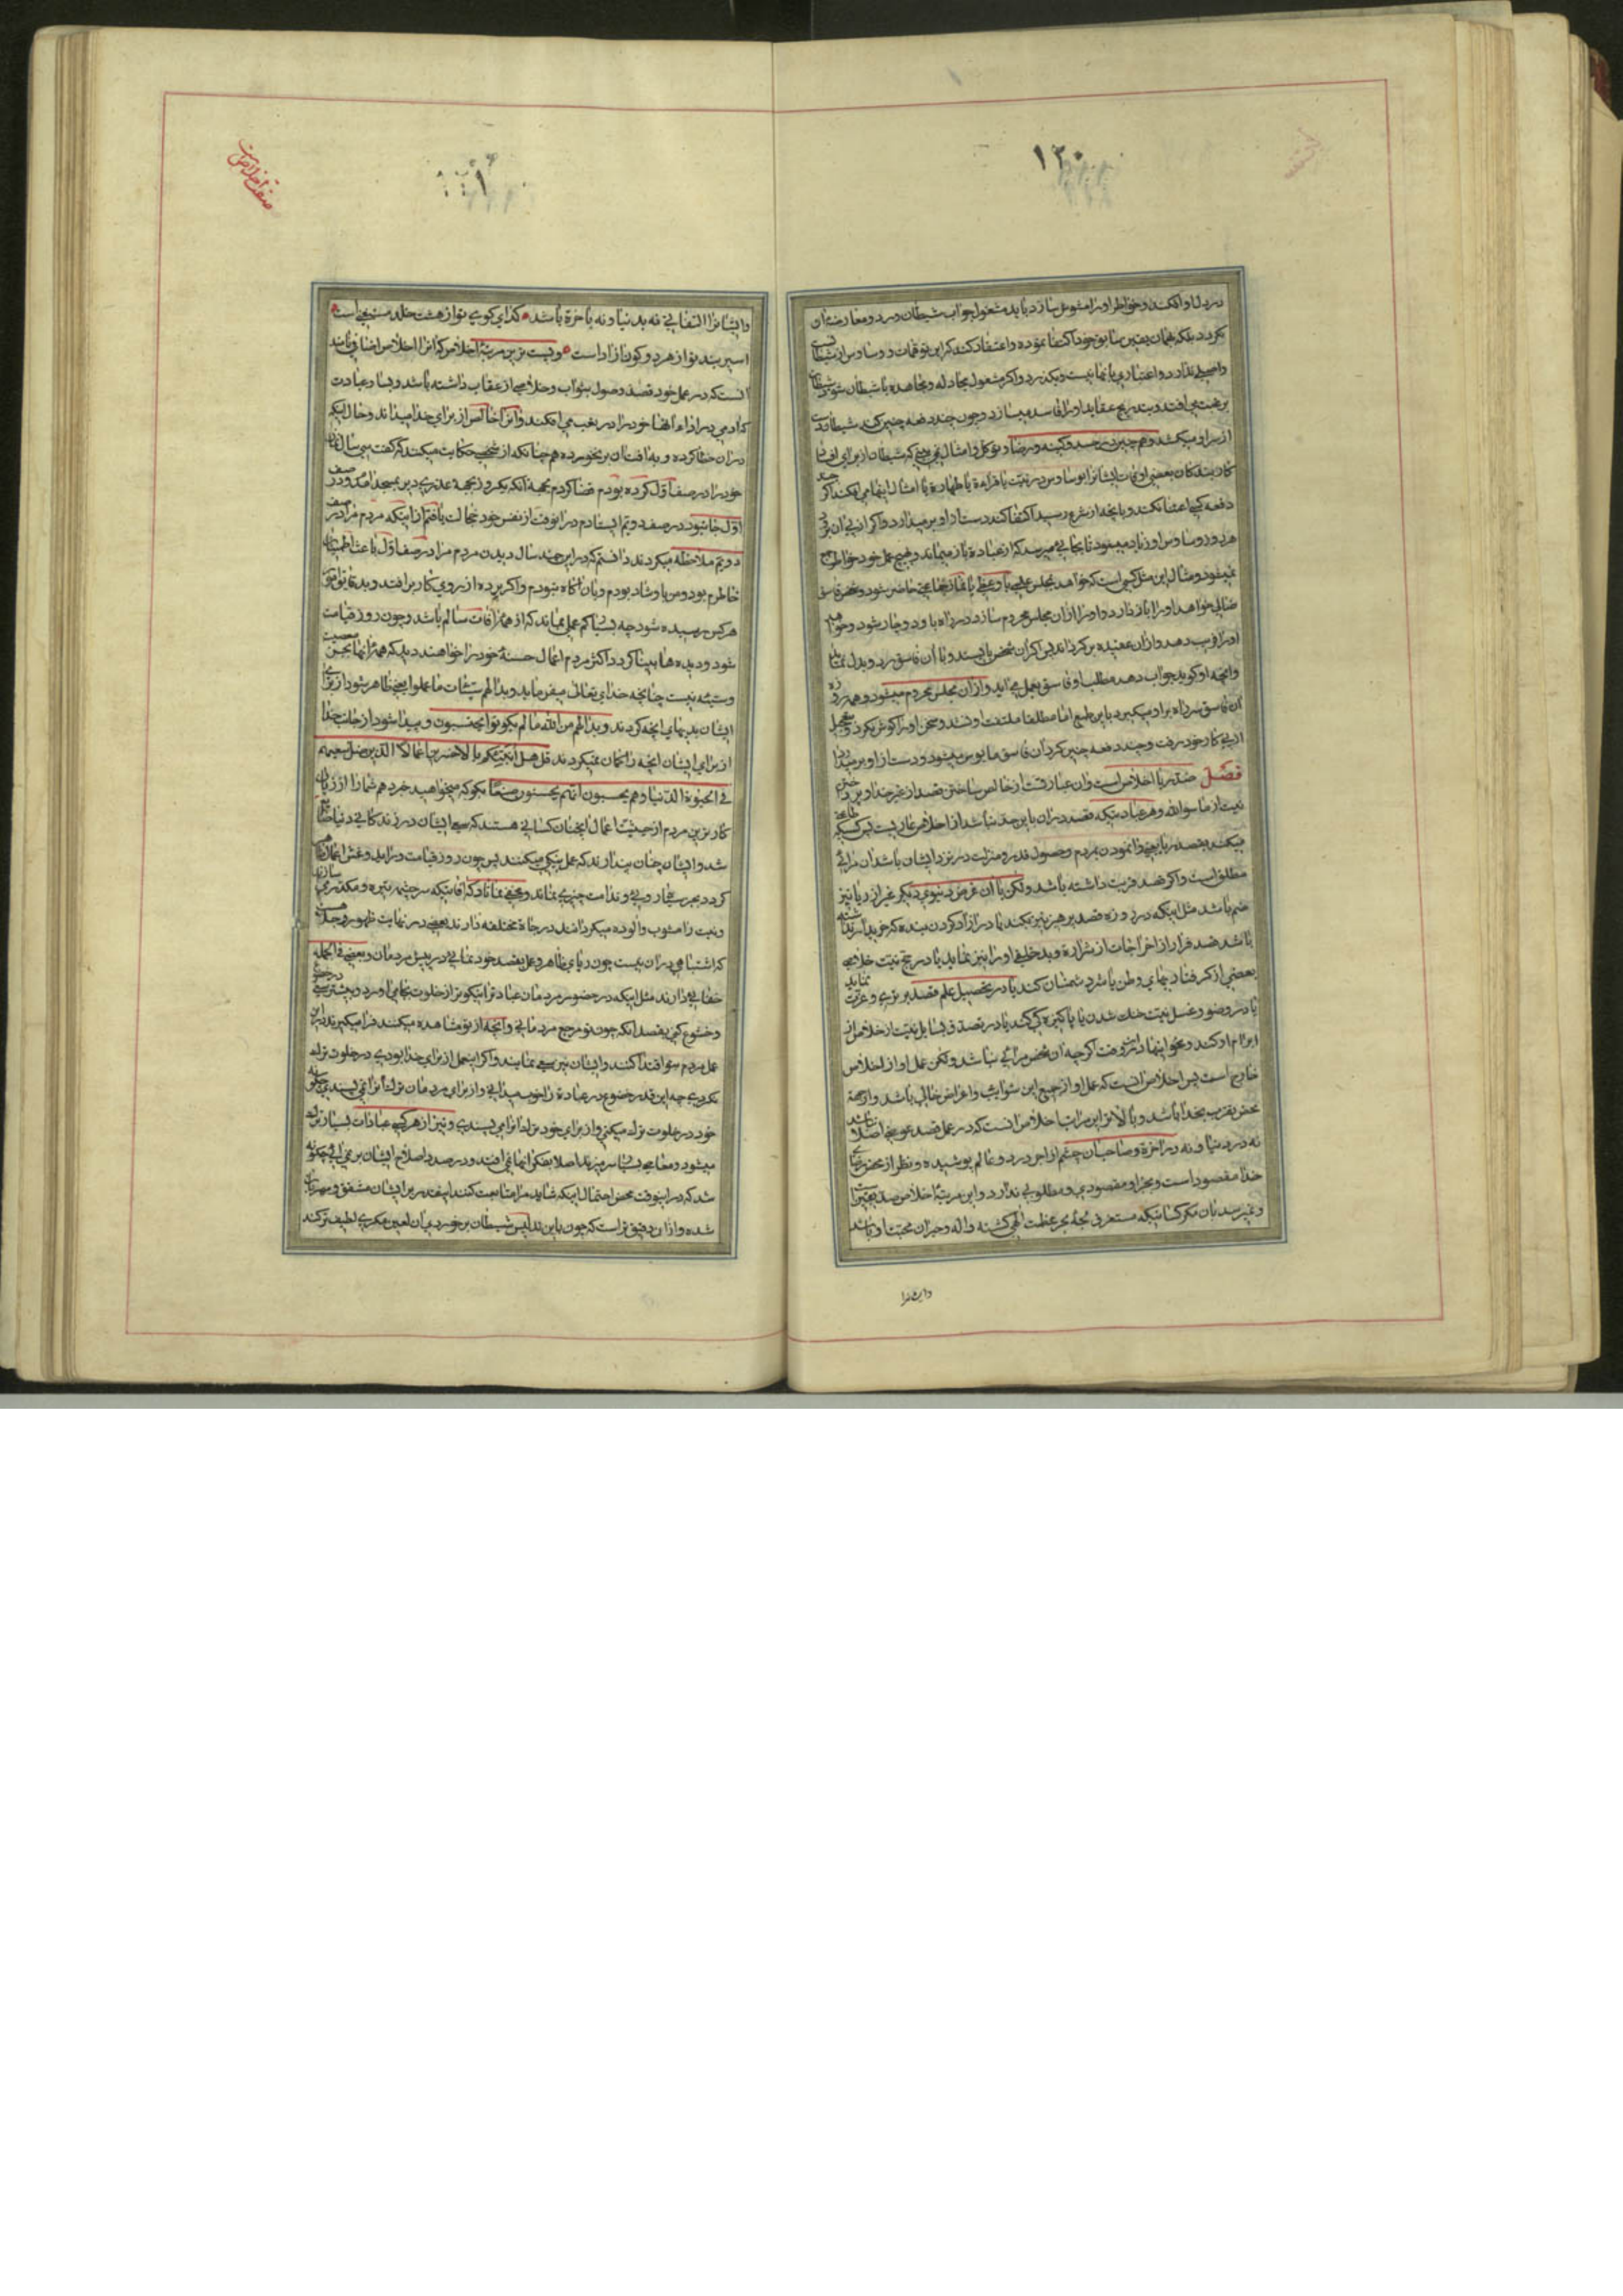 ۱۳۰
در دل او افکند و خواطر او را مشوش سازد باید مشغول جواب شیطان و رد و معارضه او
نگردد بلکه همان یقین سابق خود اکتفا نموده و اعتقاد کند که این توهمات و وساوس از شیطان
و اصلی ندارد و اعتباری بانها نیست و بگذرد و اگر مشغول مجادله و مجاهده با شیطان شود شیطان
برغبت می افتد و بتدریج عقاید او را فاسد میسازد و چون چند دفعه چنین کند شیطان دست
از سر او میکشد و هم چنین در حسد و کینه و رضا و توکل و امثال
کار بندکان بعضی اوقات ایشانرا بوساوس در نیت یا قراءة یا طهارة یا امثال اینها می افکند اگر چند
دفعه کسی اعتنا نکند و بانچه از شرع رسید اکتفا کند دست از او بر میدارد و اگر از پی ان برود
هر روز وساوس او زیاد میشود تا بجائی میرسد که از عبادة باز میماند و بهیچ عمل خود خواطر جمع
نمیشود و مثال این مثل کسی است که خواهد بمجلس علمی یا وعظی یا نماز جماعتی حاضر شود و شخص فاسق
ضالی خواهد او را باز دارد و او را از ان مجلس محروم سازد در راه با او دوچار شود و خواهد
او را فریب دهد و از ان عقیده بر گرداند پس اگر ان شخص بایستد و با ان فاسق رد و بدل نماید
و انچه او گوید جواب دهد مطلب او فاسق بعمل می آید و از ان مجلس محروم میشود و هر روزه
ان فاسق سر راه بر او میگیرد باین طمع اما مطلقا ملتفت او نشد و سخن او را گوش نکرد و بتعجیل
از پی کار خود رفت و چند دفعه چنین کرد ان فاسق مایوس میشود و دست از او بر میدارد
فصل ضد ریا اخلاص است و ان عبارتست از خالص ساختن قصد از غیر خدا و پرداختن
نیت از ما سوی الله و هر عبادتیکه قصد در ان باین حد نباشد از اخلاص عاری است پس کسیکه طاعة
میکند بقصد ریا یعنی وانمودن بمردم و حصول قدر و منزلت در نزد ایشان باشد ان مرائی
مطلق است و اگر قصد قربت داشته باشد ولکن با ان غرض دنیوی دیگر غیر از ریا نیز
ضم باشد مثل اینکه در روزه قصد پرهیز نیز بکند یا در ازاد کردن بنده که خریدار نداشته
باشد قصد فرار از اخراجات از مشرارة و بد خلقی او را نیز نماید یا در حج نیت خلاصی
بعضی از گرفتاریهای وطن یا شر دشمنان کند یا در تحصیل علم قصد برتری و عزت نماید
یا در وضو و غسل نیت خنک شدن یا پاکیزه گی کند یا در تصدق بسایل نیت خلاصی از
ابرام او کند و نحو اینها در اینوقت اگرچه ان شخص مرائی نباشد ولکن عمل او از اخلاص
خارج است پس اخلاص انست که عمل او از جمیع این شوائب و اغراض خالی باشد و از جهة
محض تقرب بخدا باشد و بالاترین مراتب اخلاص انست که در عمل قصد عوضی اصلا نباشد
نه در دنیا و نه در اخرة و صاحب ان چشم از اجر در دو عالم پوشیده و نظر از محض رضای
خدا مقصود است و بجز او مقصودی و مطلوبی ندارد و این مرتبه اخلاص صدیقین است
و نمیرسد بان مگر کسانیکه مستغرق لجه بحر عظمت الهی گشته و واله و حیران محبت او باشند
و ایشانرا
صفت اخلاص است
و ایشانرا التفاتی نه بدنیا و نه باخرة باشد گدای کوی تو از هشت خلد مستغنی است
اسیر بند تو از هر دو کون ازاد است و پست ترین مرتبه اخلاص که انرا اخلاص اضافی نامند
انست که در عمل خود قصد وصول بثواب و خلاصی از عقاب داشته باشد و بسا عبادت
که ادمی در اداء انها خود را در تعب می افکند و انرا خالص از برای خدا میداند و حال اینکه
در ان خطا کرده و به افت ان بر نخورده هم چنانکه از شخصی حکایت میکنند که گفت سی سال نماز
خود را در صف اول کرده بودم قضا کردم بجهة انکه یکروز بجهة عذری دیر بمسجد آمدم و در صف
اول جا نبود در صف دویم ایستادم در انوقت از نفس خود خجالتی یافتم از اینکه مردم مرا در صف
دویم ملاحظه میکردند دانستم که در این چند سال دیدن مردم مرا در صف اول باعث اطمینان
خاطرم بود و من باو شاد بودم و بان اگاه نبودم و اگر پرده از روی کار بر افتد
هر کس رسیده شود چه بسیار کم عملی بماند که از همه آفات سالم باشد و چون روز قیامت
شود و دیده ها بینا گردد اکثر مردم اعمال حسنه خود را خواهند دید که همه انها محض معصیت
و سیئه نیست چنانچه خدای تعالی میفرماید و بدا لهم سیئات ما عملوا یعنی ظاهر شود از برای
ایشان بدیهای انچه کردند و بدا لهم من الله ما لم یکونوا یحتسبون و پیدا شود از جانب خدا
از برای ایشان انچه را گمان نمیکردند قل هل ننبئکم بالاخسرین اعمالا الذین ضل سعیهم
فی الحیوة الدنیا و هم یحسبون انهم یحسنون صنعا بگو که میخواهید خبر دهم شما را از زیان
کارترین مردم از حیثیت اعمال انچنان کسانی هستند که سعی ایشان در زندگانی دنیا ضایع
شد و ایشان چنان پندارند که عمل نیکی میکنند پس چون روز قیامت در اید و غش اعمال ظاهر
گردد بجز سیاه روئی و ندامت چیزی نماند و مخفی نماناد که افاتیکه سرچشمه نیت را مکدر میسازد
و نیت را مشوب و آلوده میگرداند درجات مختلفه دارند بعضی در نهایت ظهور و جلا هستند
که اشتباهی در ان نیست چون ریای ظاهر و عمل بقصد خود نمائی در پیش مردمان و بعضی فی الجمله
خفائی دارند مثل اینکه در حضور مردمان عبادترا نیکوتر از خلوت بجا می اورد و بیشتر سعی در خضوع
و خشوع کنی بقصد انکه چون تو مرجع مردمانی و انچه از تو مشاهده میکنند فرا میگیرند در این
عمل مردم بتو اقتدا کنند و ایشان نیز سعی نمایند و اگر این عمل از برای خدا بودی در خلوت ترک
نکردی چه این قدر خضوع در عبادة را خوب میدانی و از برای مردمان ترک انرا نمی پسندی چگونه
خود در خلوت ترک میکنی و از برای خود ترک انرا می پسندی و نیز از هر کسی عبادات بسیار ترک
میشود و معاصی بسیار سر میزند اصلا بفکر انها نمی افتد و در صدد اصلاح ایشان بر نمی ائی چگونه
شد که در اینوقت محض احتمال اینکه شاید مرا متابعت کنند اینقدر بر ایشان مشفق و مهربان
شده و از ان دقیق تر است که چون باین تلبیس شیطان بر خوردی ان لعین مکری لطیف تر کند